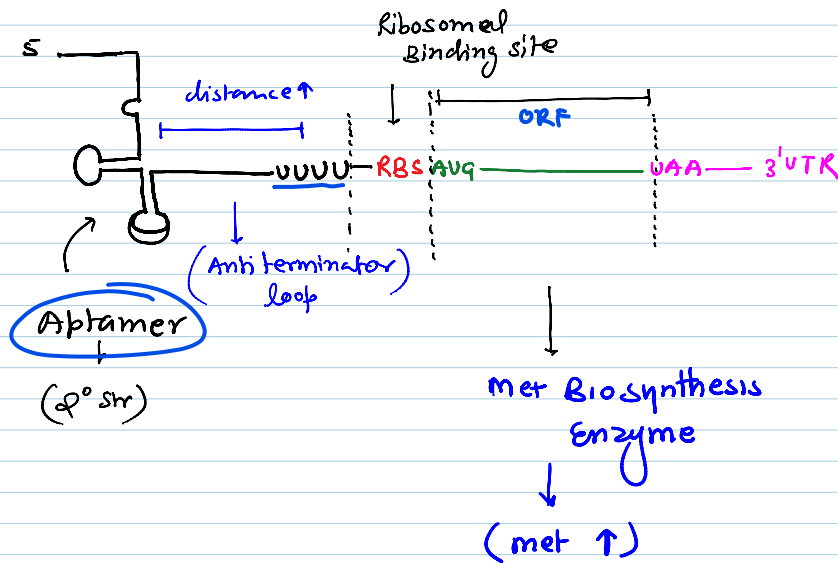 Ribosomal
Binding site
5
distance↑
ORF
UUUU
RBS AUG
UAA
3'UTR
(Antiterminator)
loop
Aptamer
(2° str)
Met Biosynthesis
Enzyme
(met ↑)